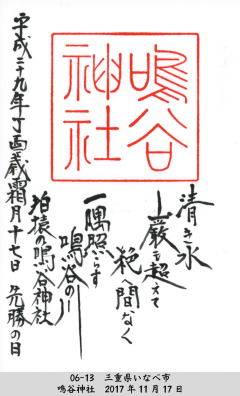 鳴谷
神社
清き水
巌を超えて
絶間なく
一隅照らす
鳴谷の川
狛猿の鳴谷神社
平成二十九年丁酉歳霜月十七日 先勝の日
06-13 三重県いなべ市
鳴谷神社 2017年11月17日